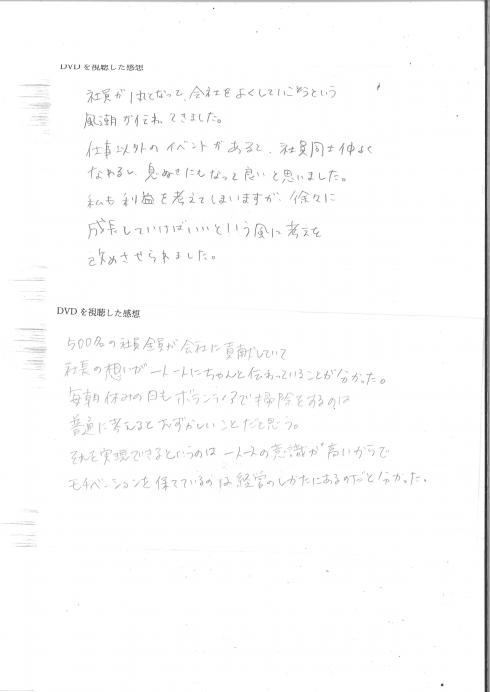 DVDを視聴した感想
社員が1つとなって、会社をよくしていこうという
風潮が伝わってきました。
仕事以外のイベントがあると、社員同士仲よく
なれると、息ぬきにもなって良いと思いました。
私も利益を考えてしまいますが、徐々に
成長していけばいいという風に考えを
改めさせられました。
DVDを視聴した感想
500名の社員全員が会社に貢献していて
社長の想いが一人一人にちゃんと伝わっていることが分かった。
毎朝休みの日もボランティアで掃除をするのは
普通に考えるとむずかしいことだと思う。
それを実現できるというのは一人一人の意識が高いからで
モチベーションを保てているのは経営のしかたにあるのだと分かった。